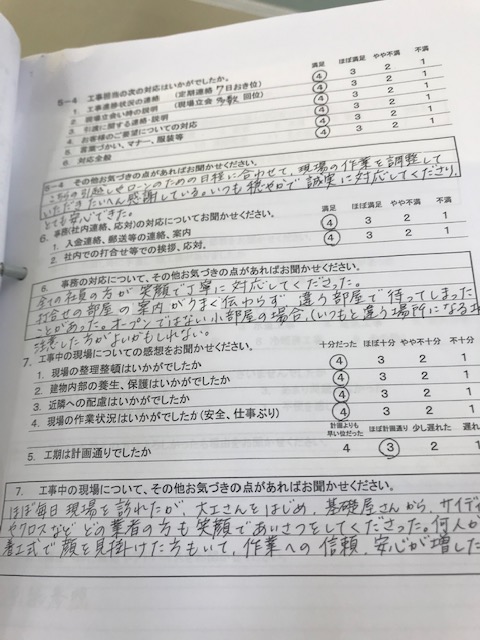 満足 ほぼ満足 やや不満 不満
5-4 工事担当の次の対応はいかがでしたか。
1. 工事進捗状況の連絡 (定期連絡 7日おき位) ④ 3 2 1
2. 現場立会い時の説明 (現場立会 多数 回位) ④ 3 2 1
3. 引渡に関する連絡・説明 ④ 3 2 1
4. お客様のご要望についての対応 ④ 3 2 1
5. 言葉づかい、マナー、服装等 ④ 3 2 1
6. 対応全般 ④ 3 2 1
5-4 その他お気づきの点があればお聞かせください。
こちらの引越しやローンのための日程に合わせて、現場の作業を調整して
いただきたいへん感謝している。いつも穏やかで誠実に対応してくださり、
とても安心できた。
6. 事務(社内連絡、応対)の対応についてお聞かせください。 満足 ほぼ満足 やや不満 不満
1. 入金連絡、郵送等の連絡、案内 ④ 3 2 1
2. 社内での打合せ等での挨拶、応対。 ④ 3 2 1
6. 事務の対応について、その他お気づきの点があればお聞かせください。
全ての社員の方が笑顔で丁寧に対応してくださった。
打合せの部屋の案内がうまく伝わらず 違う部屋で待ってしまった
ことがあった。オープンではない小部屋の場合(いつもと違う場所になる場
注意した方がよいかもしれない。
7. 工事中の現場についての感想をお聞かせください。 十分だった ほぼ十分 やや不十分 不十分
1. 現場の整理整頓はいかがでしたか ④ 3 2 1
2. 建物内部の養生、保護はいかがでしたか ④ 3 2 1
3. 近隣への配慮はいかがでしたか ④ 3 2 1
4. 現場の作業状況はいかがでしたか(安全、仕事ぶり) ④ 3 2 1
計画よりも早い位だった ほぼ計画通り 少し遅れた 遅れ
5. 工期は計画通りでしたか 4 ③ 2 1
7. 工事中の現場について、その他お気づきの点があればお聞かせください。
ほぼ毎日現場を訪れたが、大工さんをはじめ、基礎屋さんから、サイディ
やクロスなど どの業者の方も笑顔であいさつをしてくださった。何人か
着工式で顔を見掛けた方もいて、作業への信頼、安心が増した